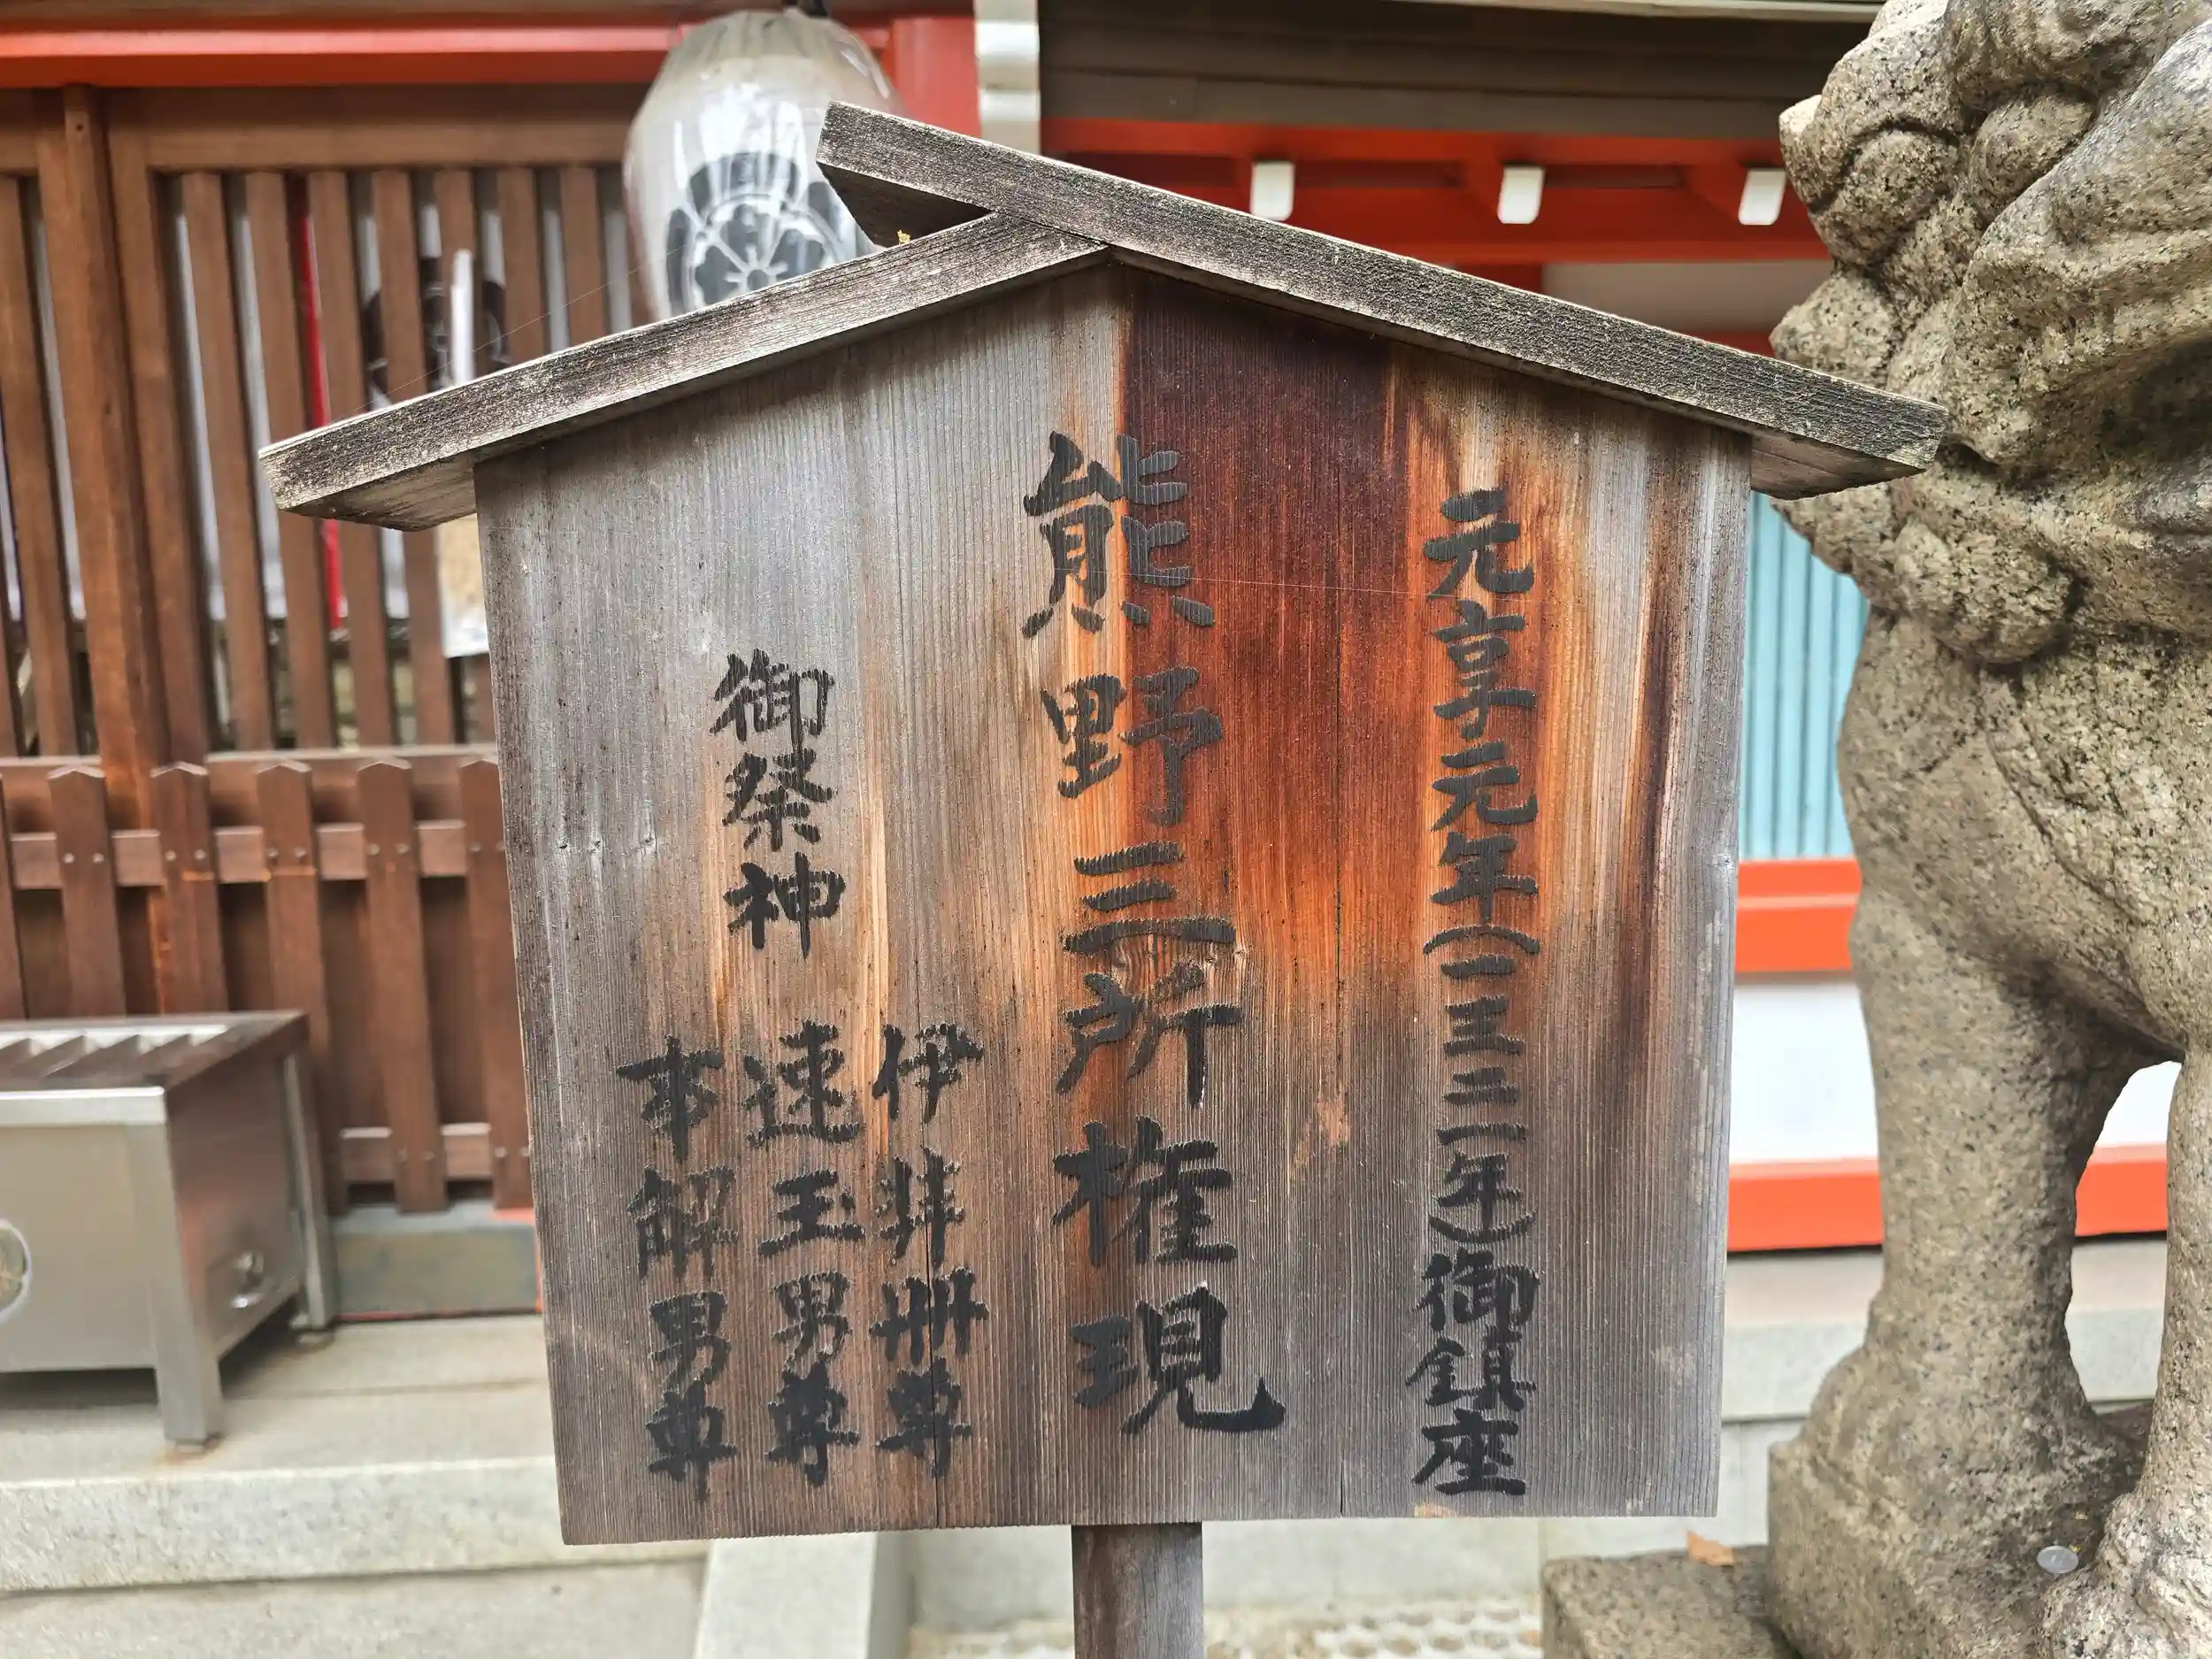 元亨元年(一三二一年)御鎮座
熊野三所権現
御祭神
伊弉冊尊
速玉男尊
事解男尊